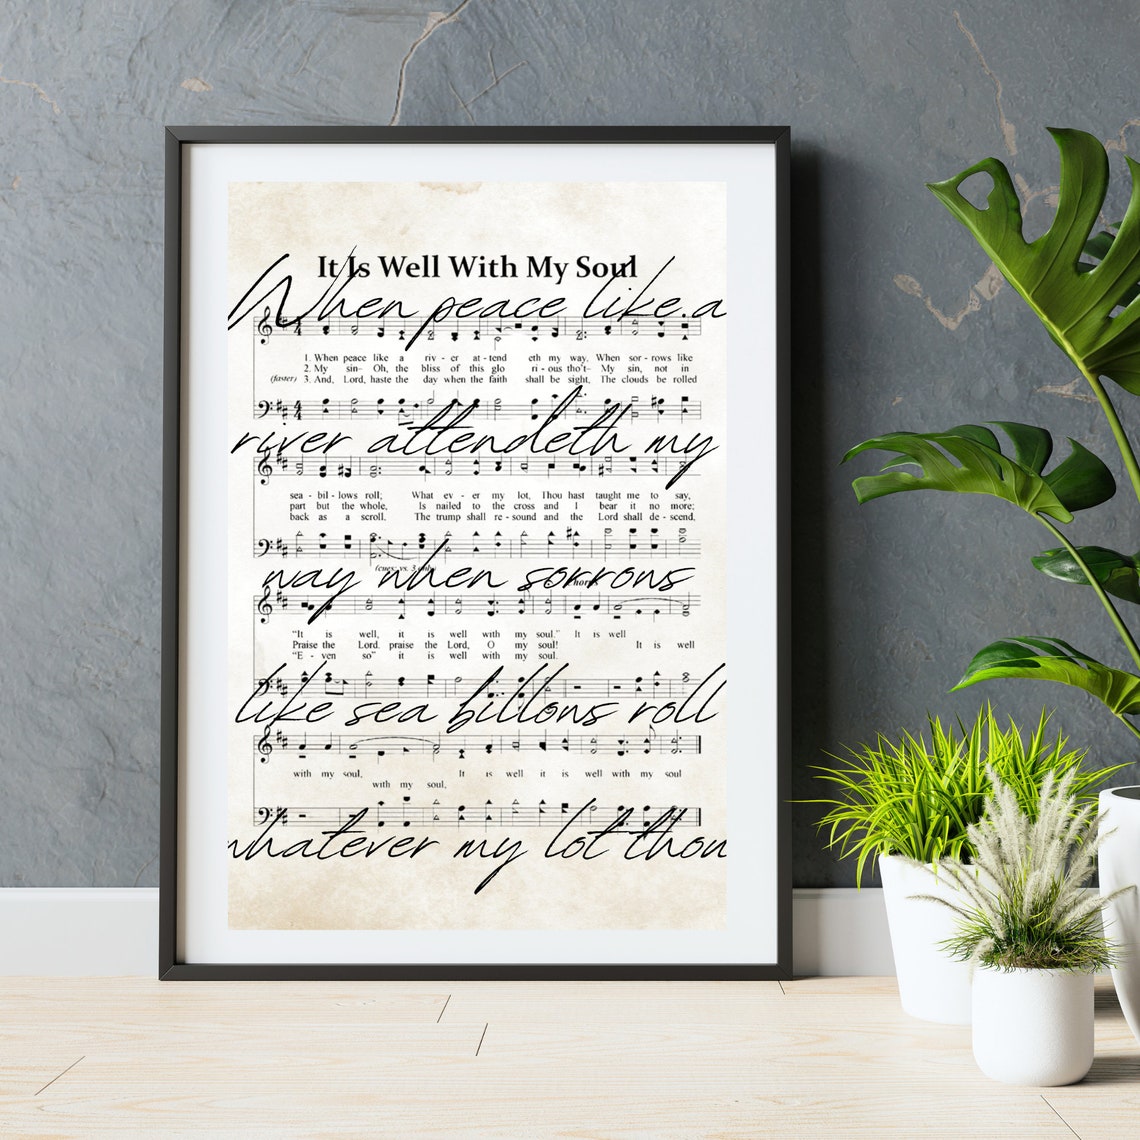 It Is Well With My Soul
When peace like a
1. When peace like a riv - er at - tend eth my way, When sor - rows like
2. My sin- Oh, the bliss of this glo ri - ous tho't- My sin, not in
(faster) 3. And, Lord, haste the day when the faith shall be sight, The clouds be rolled
river attendeth my
sea - bil - lows roll; What ev - er my lot, Thou hast taught me to say,
part but the whole, Is nailed to the cross and I bear it no more;
back as a scroll. The trump shall re - sound and the Lord shall de - scend,
(cues: vs. 3 only)
way when sorrows
"It is well, it is well with my soul." It is well
Praise the Lord. praise the Lord, O my soul! It is well
"E - ven so" it is well with my soul.
like sea billows roll
with my soul, It is well it is well with my soul
with my soul,
whatever my lot thou